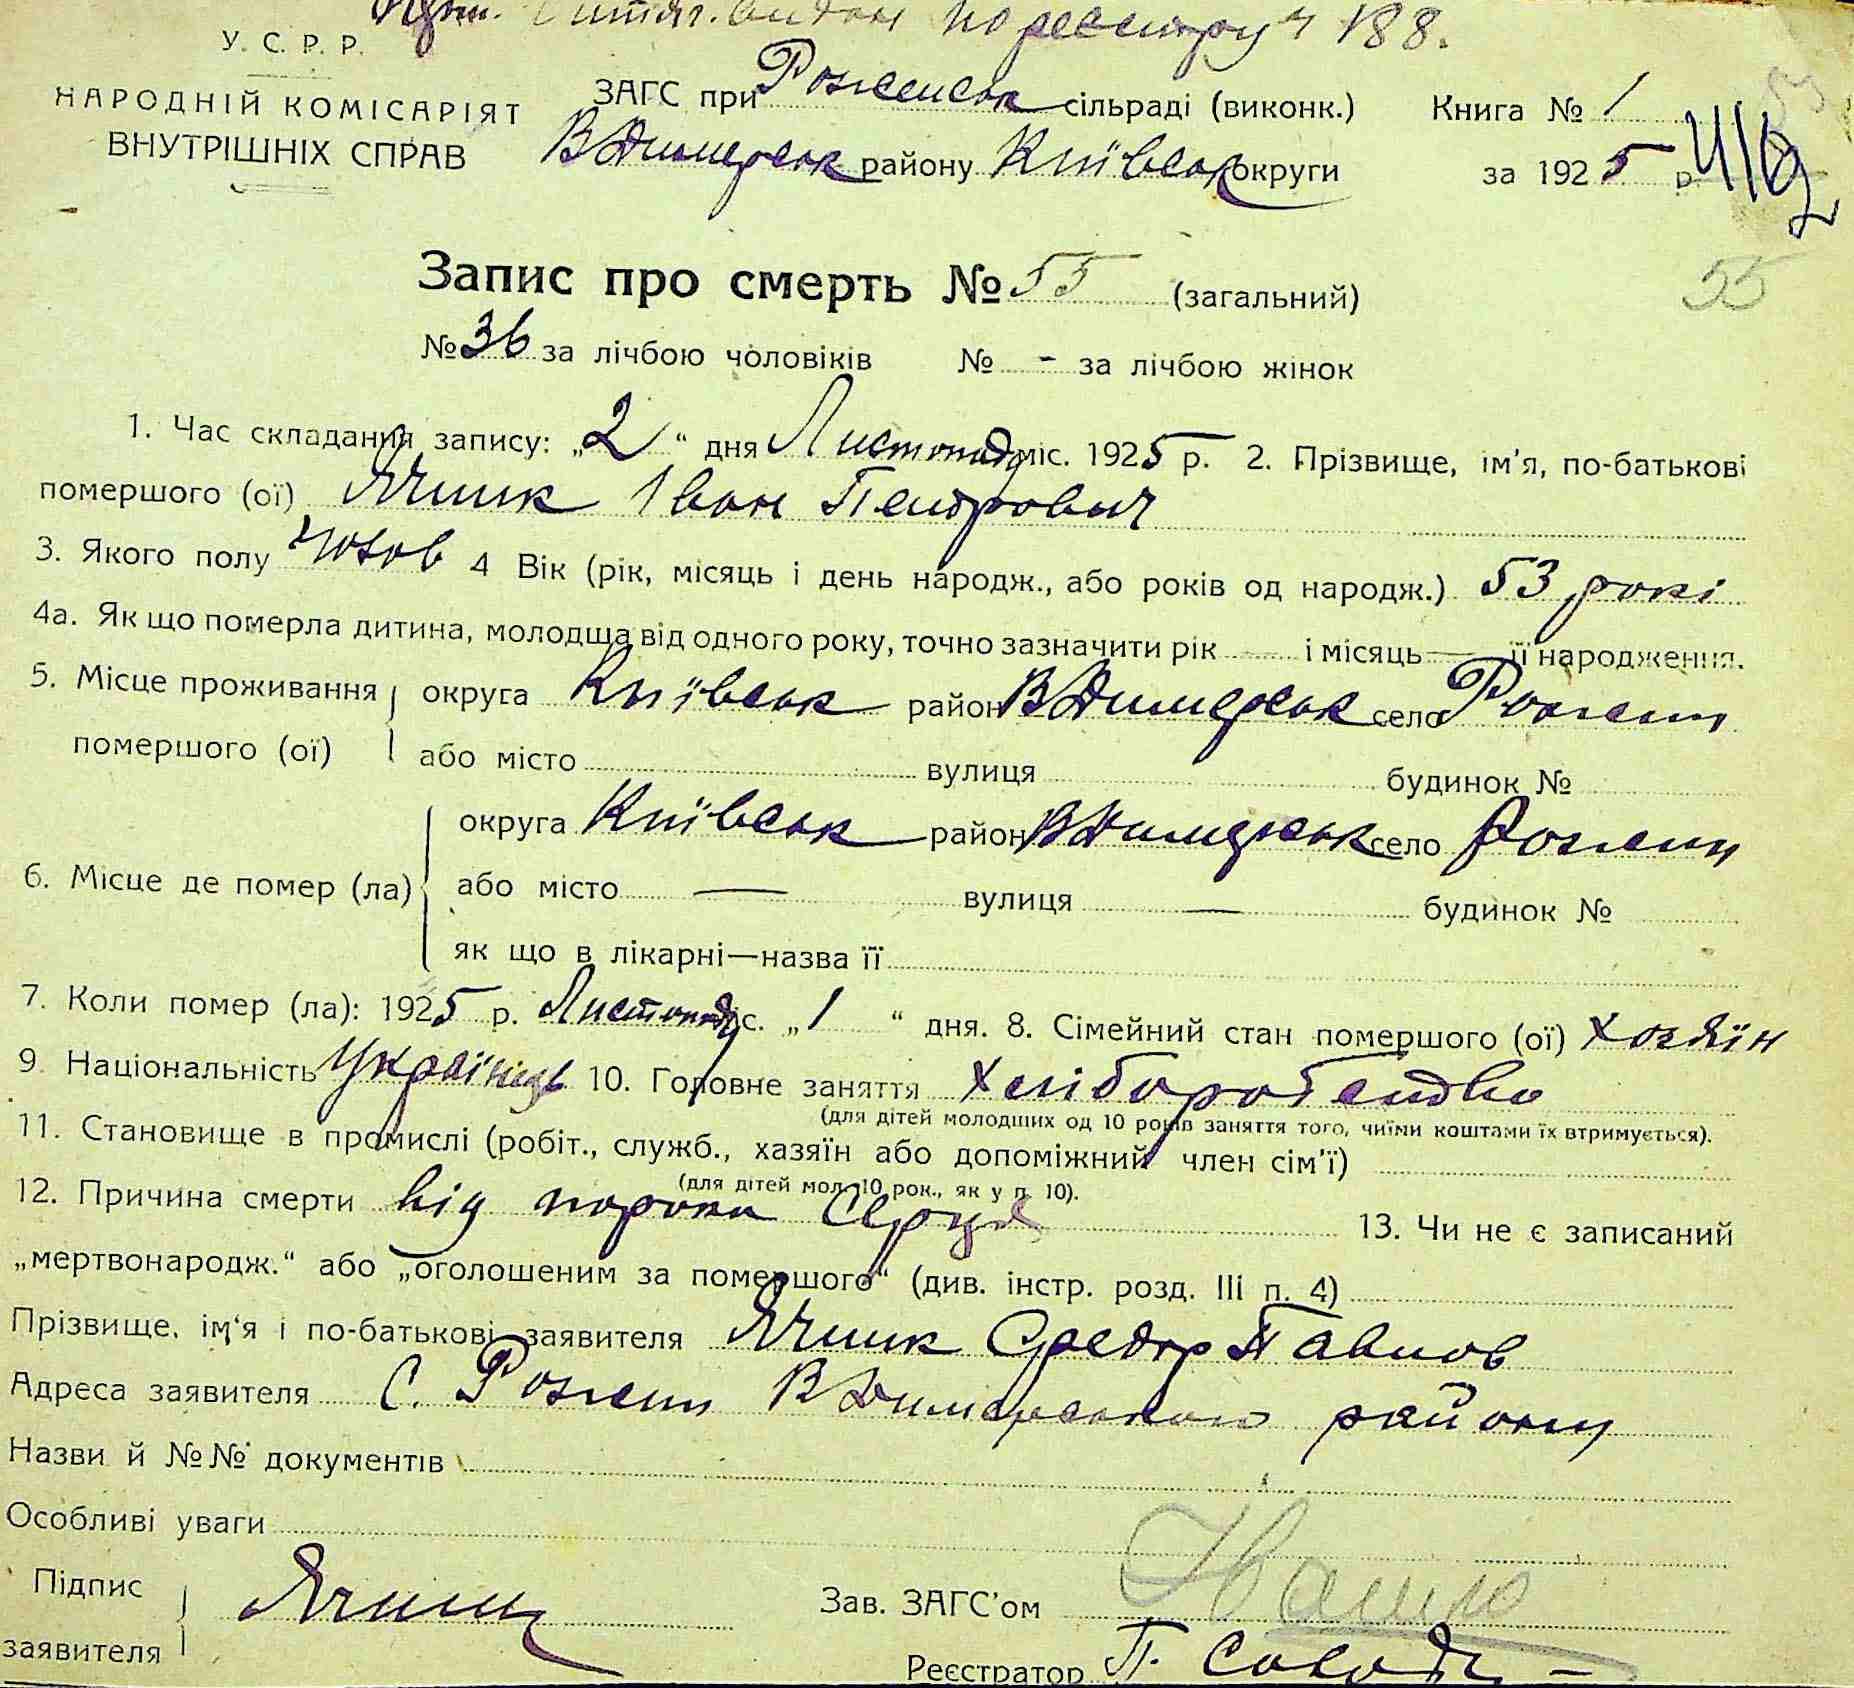 по реєстру ч 188.
У. С. Р. Р.
НАРОДНІЙ КОМІСАРІЯТ
ВНУТРІШНІХ СПРАВ
ЗАГС при Роженськ сільраді (виконк.) Книга № 1
ВДимерськ району Київськ округи за 1925 р.
Запис про смерть № 55 (загальний)
55
№ 36 за лічбою чоловіків № - за лічбою жінок
1. Час складання запису: „2“ дня Листопаду міс. 1925 р. 2. Прізвище, ім'я, по-батькові
помершого (ої) Ячник Іван Петрович
3. Якого полу 4 Вік (рік, місяць і день народж., або років од народж.) 53 рокі
4а. Як що померла дитина, молодща від одного року, точно зазначити рік — і місяць — її народження.
5. Місце проживання округа Київськ район ВДимерськ село Рожени
помершого (ої) або місто вулиця будинок №
округа Київськ район ВДимерськ село Рожени
6. Місце де помер (ла) або місто — вулиця — будинок №
як що в лікарні—назва її
7. Коли помер (ла): 1925 р. Листопаду міс. „1“ дня. 8. Сімейний стан помершого (ої) хозяїн
9. Національність Українець 10. Головне заняття Хліборобство
(для дітей молодших од 10 років заняття того, чиїми коштами їх втримується).
11. Становище в промислі (робіт., служб., хазяїн або допоміжний член сім'ї)
(для дітей мол. 10 рок., як у п. 10).
12. Причина смерти від порока Серця 13. Чи не є записаний
„мертвонародж.“ або „оголошеним за помершого“ (див. інстр. розд. III п. 4)
Прізвище, ім'я і по-батькові заявителя Ячник Федор Павлов
Адреса заявителя С. Рожени ВДимерського району
Назви й №№ документів
Особливі уваги
Підпис
заявителя Ячник
Зав. ЗАГС'ом
Реєстратор П.